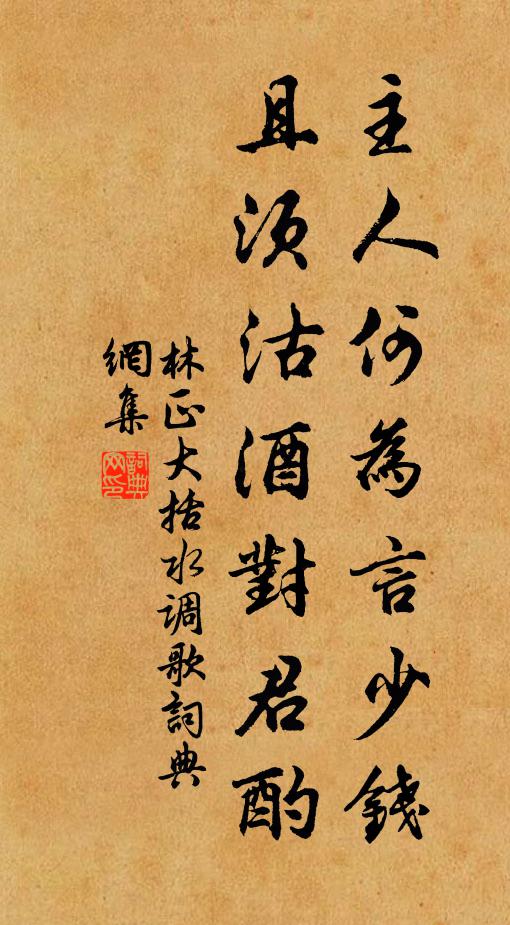 主人何為言少錢
且須沽酒對君酌
林正大括水调歌詞典
網集
詞典
网印